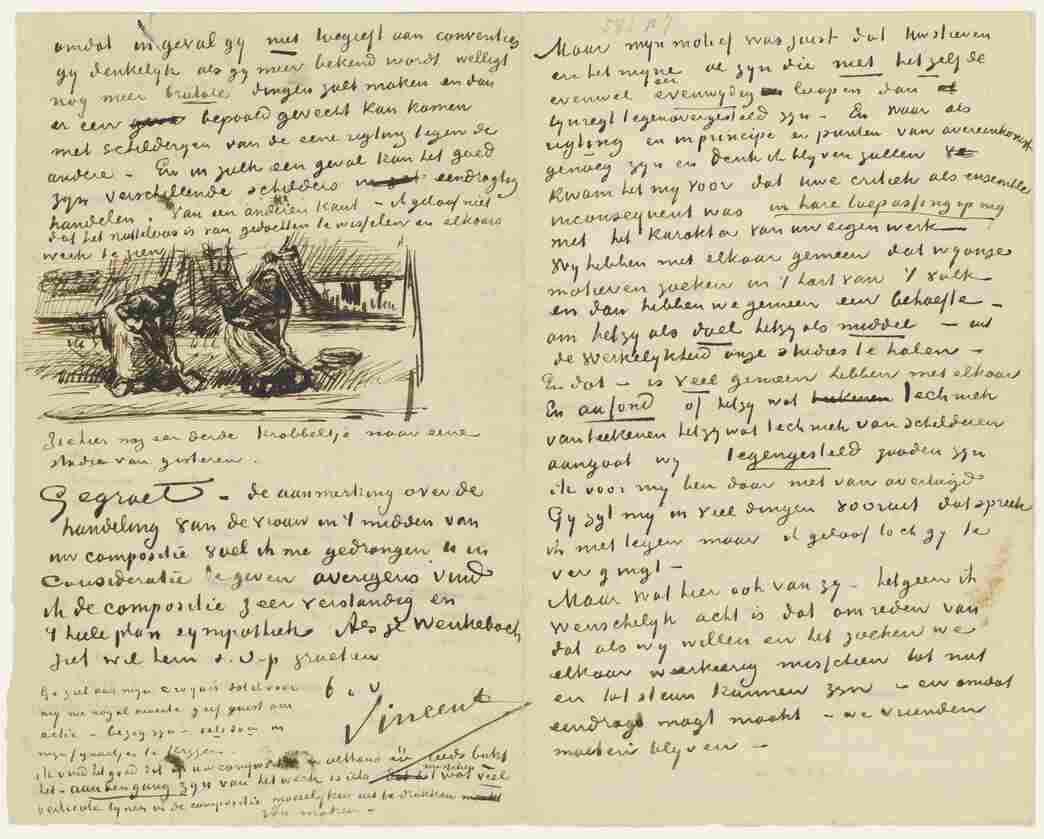 omdat ingeval gy niet toegeeft aan conventies
gy denkelyk als gy meer bekend wordt welligt
nog meer brutale dingen zult maken en dan
er een bepaald gevecht kan komen
met schilderyen van de eene rigting tegen de
andere – En in zulk een geval kan het goed
zyn verschillende schilders eendragtig
handelen. Van een anderen kant – ik geloof niet
dat het nutteloos is van gedachten te wisselen en elkaars
werk te zien
Ziehier nog een derde krabbeltje naar eene
studie van gisteren.
Gegroet – de aanmerking over de
handeling van de vrouw in 't midden van
uw compositie voel ik me gedrongen u in
consideratie te geven overigens vind
ik de compositie zeer verstandig en
't heele plan sympathiek Als ge Wenkebach
ziet wil hem s.v.p groeten
Ge ziet aan myn croquis dat ik voor
my me nogal moeite geef juist om
actie – bezig zyn – iets doen in
myn figuurtjes te krijgen –
b. à v
Vincent
ik vind het goed dat in uw compositie althans iets bukt
het aan den gang zyn van het werk is iets wat veel
verticale lynen in de compositie moeielyker uit te drukken
zou maken –
58 R7
Maar myn motief was juist dat Uw streven
en het myne al zyn die niet hetzelfde
evenwel eer evenwydig loopen dan
lynregt tegenovergesteld zyn – En waar als
rigting en in principe er punten van overeenkomst
genoeg zyn en denk ik blyven zullen
Kwam het my voor dat uwe critiek als ensemble
inconsequent was in hare toepassing op my
met het karakter van uw eigen werk –
Wy hebben met elkaar gemeen dat wy onze
motieven zoeken in 't hart van 't volk
en dan hebben we gemeen een behoefte –
om hetzy als doel hetzy als middel – uit
de werkelykheid onze studies te halen –
En dat – is veel gemeen hebben met elkaar
En au fond of hetzy wat techniek
van teekenen hetzy wat techniek van schilderen
aangaat wy tegengesteld zouden zyn
ik voor my ben daar niet van overtuigd
Gy zyt my in veel dingen vooruit dat spreek
ik niet tegen maar ik geloof toch gy te
ver gingt –
Maar wat hier ook van zy – hetgeen ik
wenschelyk acht is dat om reden van
dat als wy willen en het zoeken we
elkaar weerkeerig misschien tot nut
en tot steun kunnen zyn – en omdat
eendragt magt maakt – we vrienden
moeten blyven –